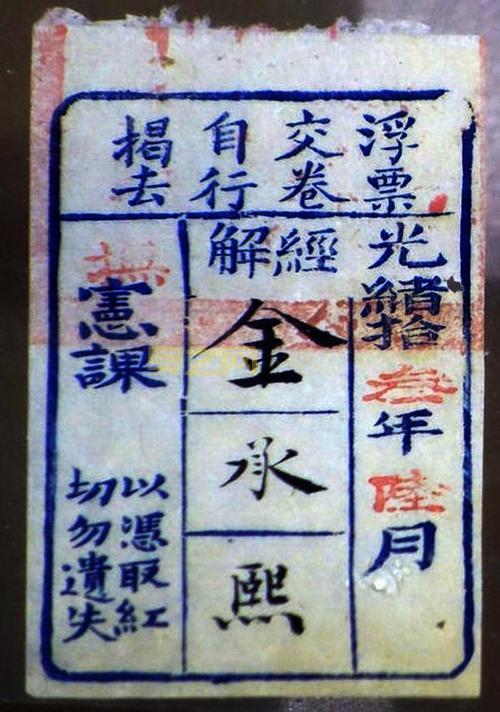 浮票
交卷
自行
揭去
光緒拾叁年陸月
經解
金承熙
撫憲課
以憑取紅
切勿遺失